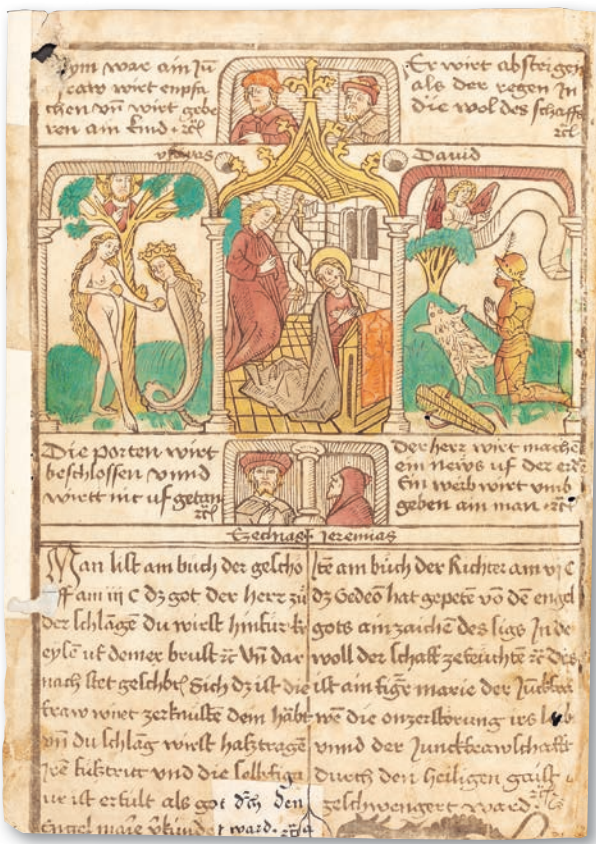 Sym war ain Jū
fraw wirt enpfa
chen vn̄ wirt gebe
ren ain kind · ꝛcͭ
Er wirt absteigen
als der regen in
die wol des schaffs
ꝛcͭ
ysayas
David
Die porten wirt
beschlossen vnnd
wirtt nit uf getan
ꝛcͭ
der herr wirt mache
ein news uf der erde
Ein weib wirt vmb
geben ain man · ꝛcͭ
Ezechias Jeremias
Man list am buch der gescho
pff am iij C dz got der herr zů
der schlāgē du wirst hinfur kr
eyſē uf deiner brust ꝛc Vn̄ dar
nach stet geschbē Sich dz ist die
fraw wirt zerknistē dein hābt
vn̄ du schlāg wirst haßtragē
Jrē fůßtritt vnd die selb figa
ur ist erfült als got dch den
Engel marie vkündet ward · ꝛc
Itē am bůch der Richter am vj C
dz Gedeō hat gepetē vō dē engel
gots ain zaichē des sigs In de
woll der schaff zefeuchtē ꝛc des
ist ain figr̄ marie der Juckfraw
wē die onzerstörung irs leib
vnnd der Junckfrawschafft
durch den heiligen gaist
geschwengert ward · ꝛc